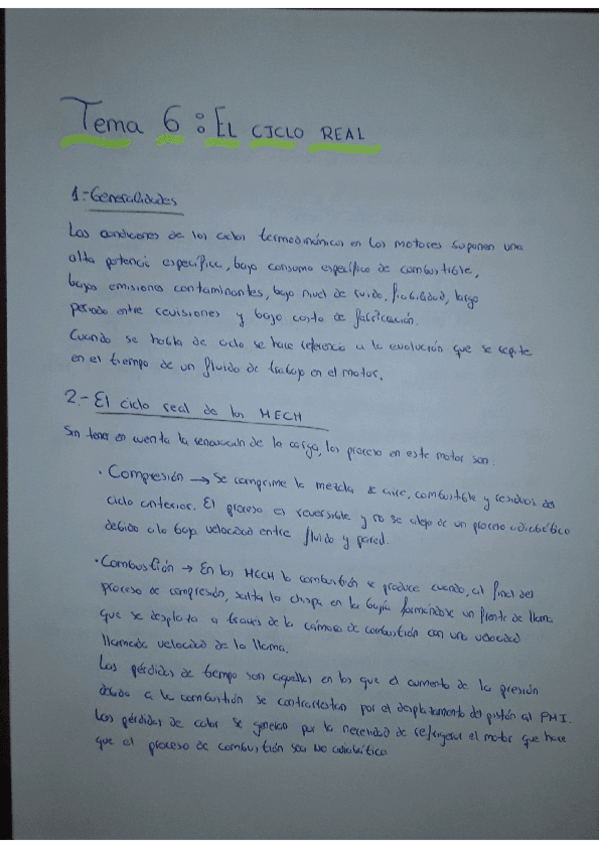 Tema 6: EL CICLO REAL
1.- Generalidades
Las condiciones de los ciclos termodinámicos en los motores suponen una
alta potencia específica, bajo consumo específico de combustible,
bajas emisiones contaminantes, bajo nivel de ruido, fiabilidad, largo
periodo entre revisiones y bajo costo de fabricación.
Cuando se habla de ciclo se hace referencia a la evolución que se repite
en el tiempo de un fluido de trabajo en el motor.
2.- El ciclo real de los MECH
Sin tener en cuenta la renovación de la carga, los proceso en este motor son:
· Compresión → Se comprime la mezcla de aire, combustible y residuos del
ciclo anterior. El proceso es reversible y no se aleja de un proceso adiabático
debido a la baja velocidad entre fluido y pared.
· Combustión → En los MECH la combustión se produce cuando, al final del
proceso de compresión, salta la chispa en la bujía formándose un frente de llama
que se desplaza a través de la cámara de combustión con una velocidad
llamada velocidad de la llama.
Las pérdidas de tiempo son aquellas en las que el aumento de la presión
debido a la combustión se contrarrestan por el desplazamiento del pistón al PMI.
Las pérdidas de calor se generan por la necesidad de refrigerar el motor que hace
que el proceso de combustión sea no adiabático